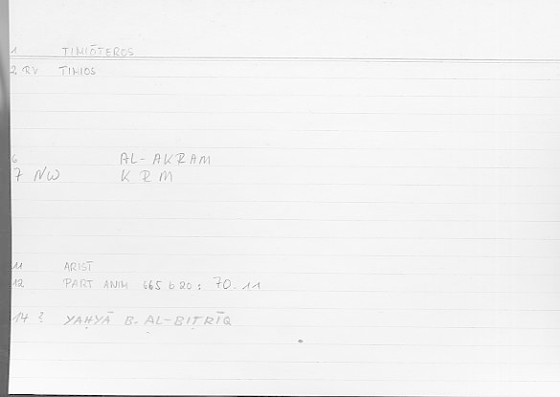 1 TIMIŌTEROS
2 RV TIMIOS
6 AL-AKRAM
7 NW K R M
11 ARIST
12 PART ANIM 665 b 20 : 70.11
14 ? YAḤYĀ B. AL-BIṬRĪQ